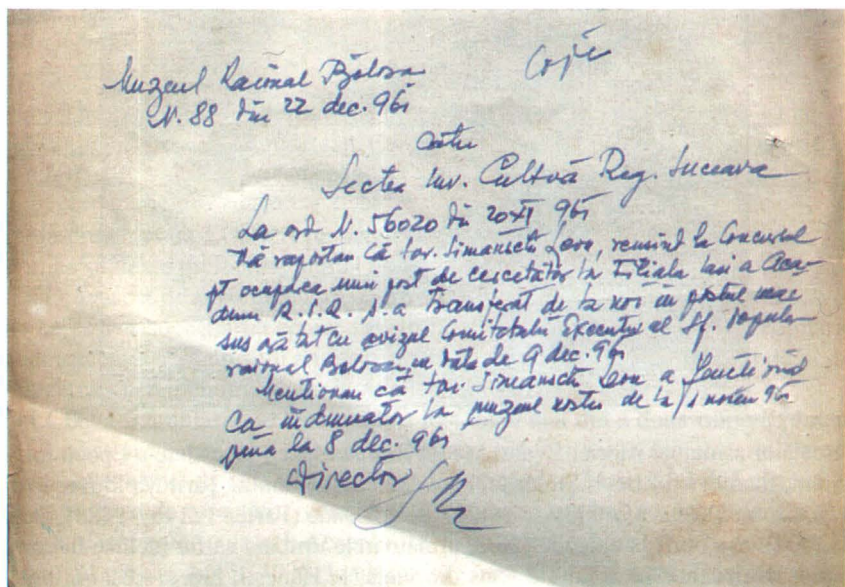 Copie
Muzeul Raional Fălticeni
N. 88 din 22 dec. 961
către
Secția Inv. Cultură Reg. Suceava
La ord N. 56020 din 20 XI 961
Vă raportăm că tov. Simanschi Leon, reușind la Concursul
pt ocuparea unui post de cercetător la Filiala Iași a Aca-
demiei R.P.R. s-a transferat de la noi în postul mai
sus arătat cu avizul Comitetului Executiv al Sf. Popular
raional în data de 9 dec. 961
Menționăm că tov. Simanschi Leon a funcționat
ca îndrumător la muzeul nostru de la 1 noem 961
pînă la 8 dec. 961
Director